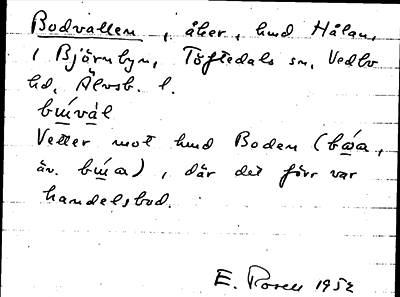 Bodvallen, åker, hmd Hålan,
i Björnbyn, Töftedals sn, Vedbo
hd, Älvsb. l.
Vetter mot hmd Boden (
äv. ), där det förr var
handelsbod.
E. Rosell 1952